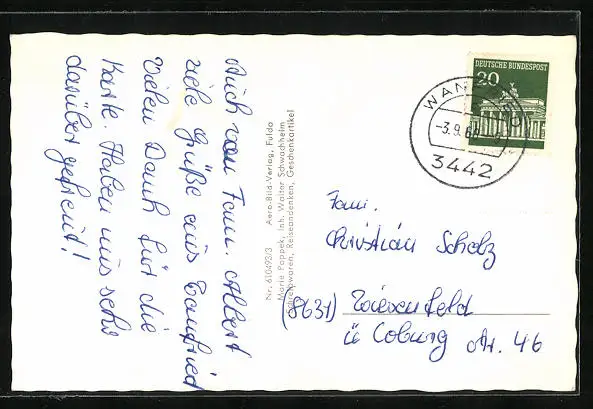 Auch von Fam. Albert
viele Grüße aus
Vielen Dank für die
Karte. Haben uns sehr
darüber gefreut!
Nr. 610493/3 Aero-Bild-Verlag, Fulda
Marie Poppek, Inh. Walter Schwachheim
Reiseandenken, Geschenkartikel
DEUTSCHE BUNDESPOST
20
WAN
-3.9.6
3442
Fam.
Christian Scholz
(8631) Wiesenfeld
ü Coburg Nr. 46